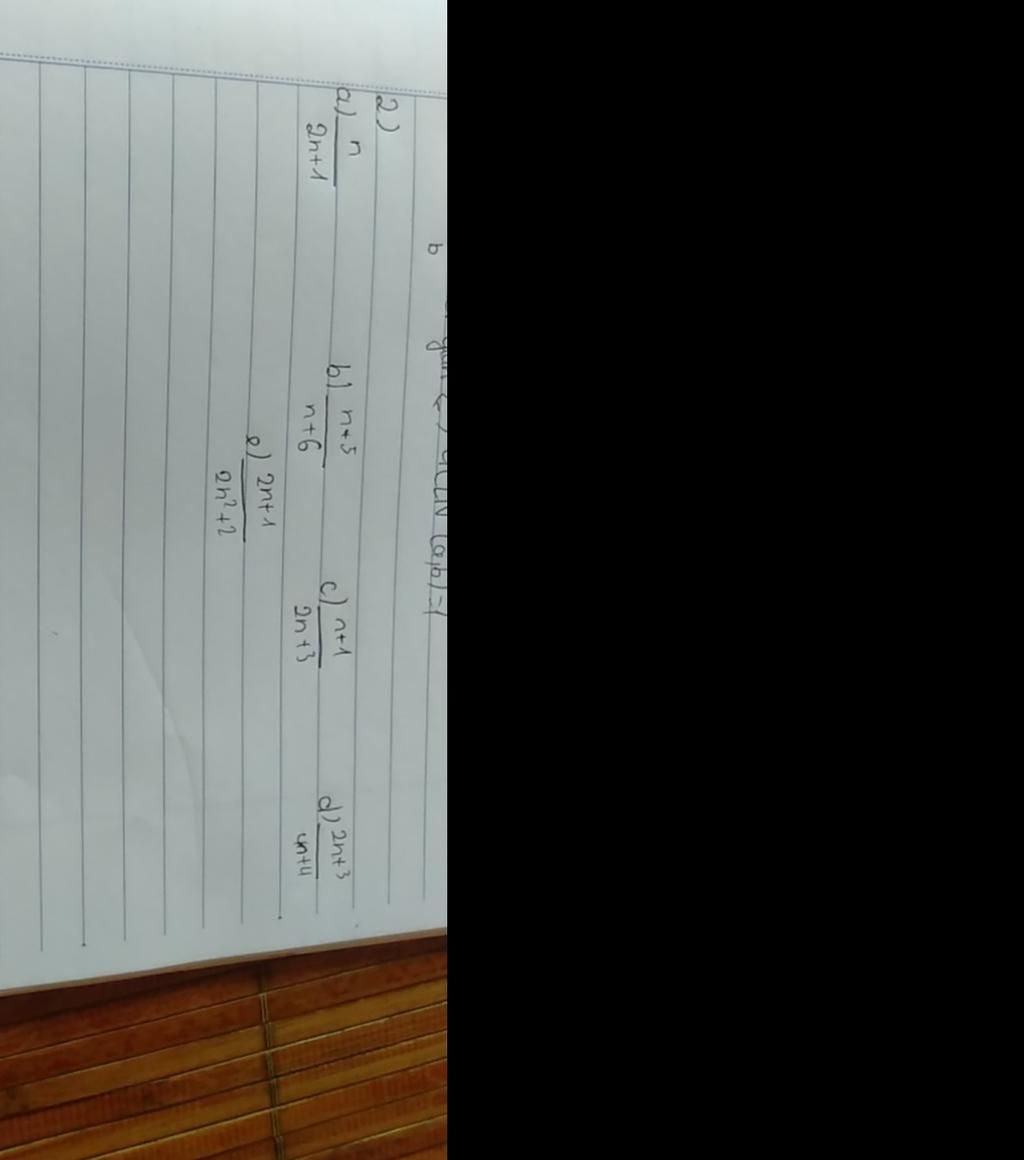 b
ƯCLN (a,b)=1
2)
a) n/2n+1 b) n+5/n+6 c) n+1/2n+3 d) 2n+3/4n+4
e) 2n+1/2n²+2